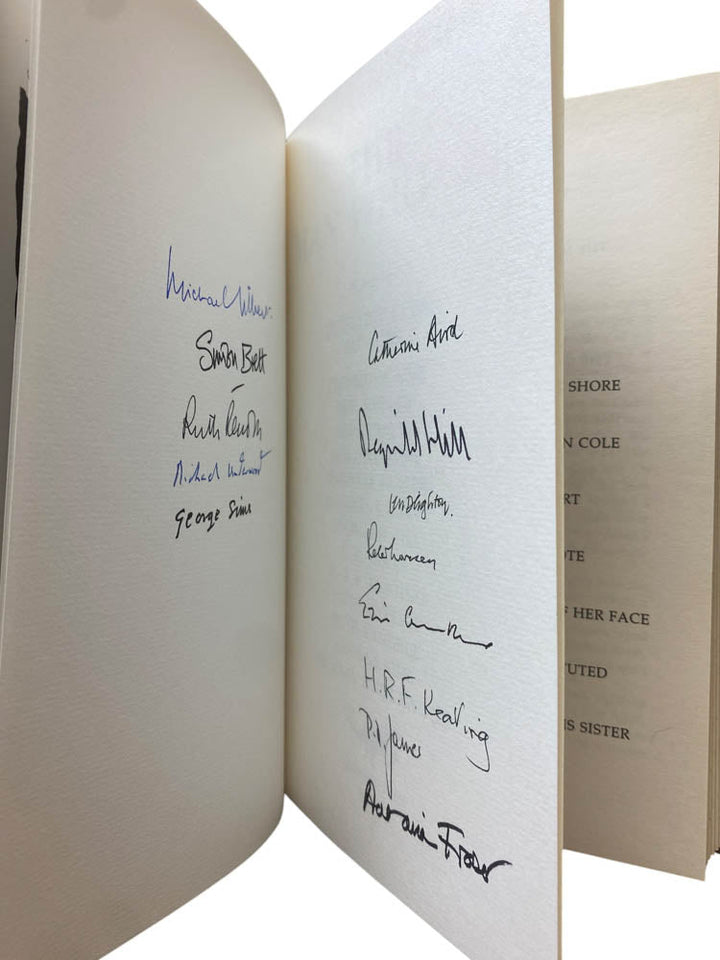 Michael Gilbert.
Simon Brett
Ruth Rendell
Michael Underwood
George Sims
Catherine Aird
Reginald Hill
Len Deighton.
Eric Ambler
H.R.F. Keating
P.D. James
Antonia Fraser
SHORE
N COLE
RT
OTE
F HER FACE
TUTED
IS SISTER